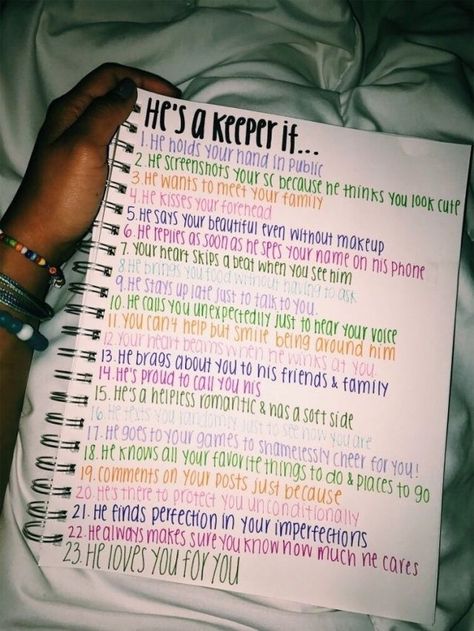 He's a keeper if...
1. He holds your hand in public
2. He screenshots your sc because he thinks you look cute
3. He wants to meet your family
4. He kisses your forehead
5. He says your beautiful even without makeup
6. He replies as soon as he sees your name on his phone
7. Your heart skips a beat when you see him
8. He brings you food without having to ask
9. He stays up late just to talk to you.
10. He calls you unexpectedly just to hear your voice
11. You can't help but smile being around him
12. Your heart beams when he winks at you.
13. He brags about you to his friends & family
14. He's proud to call you his
15. He's a helpless romantic & has a soft side
16. He texts you randomly just to see how you are
17. He goes to your games to shamelessly cheer for you!
18. He knows all your favorite things to do & places to go
19. comments on your posts just because
20. He's there to protect you unconditionally
21. He finds perfection in your imperfections
22. He always makes sure you know how much he cares
23. He loves you for you